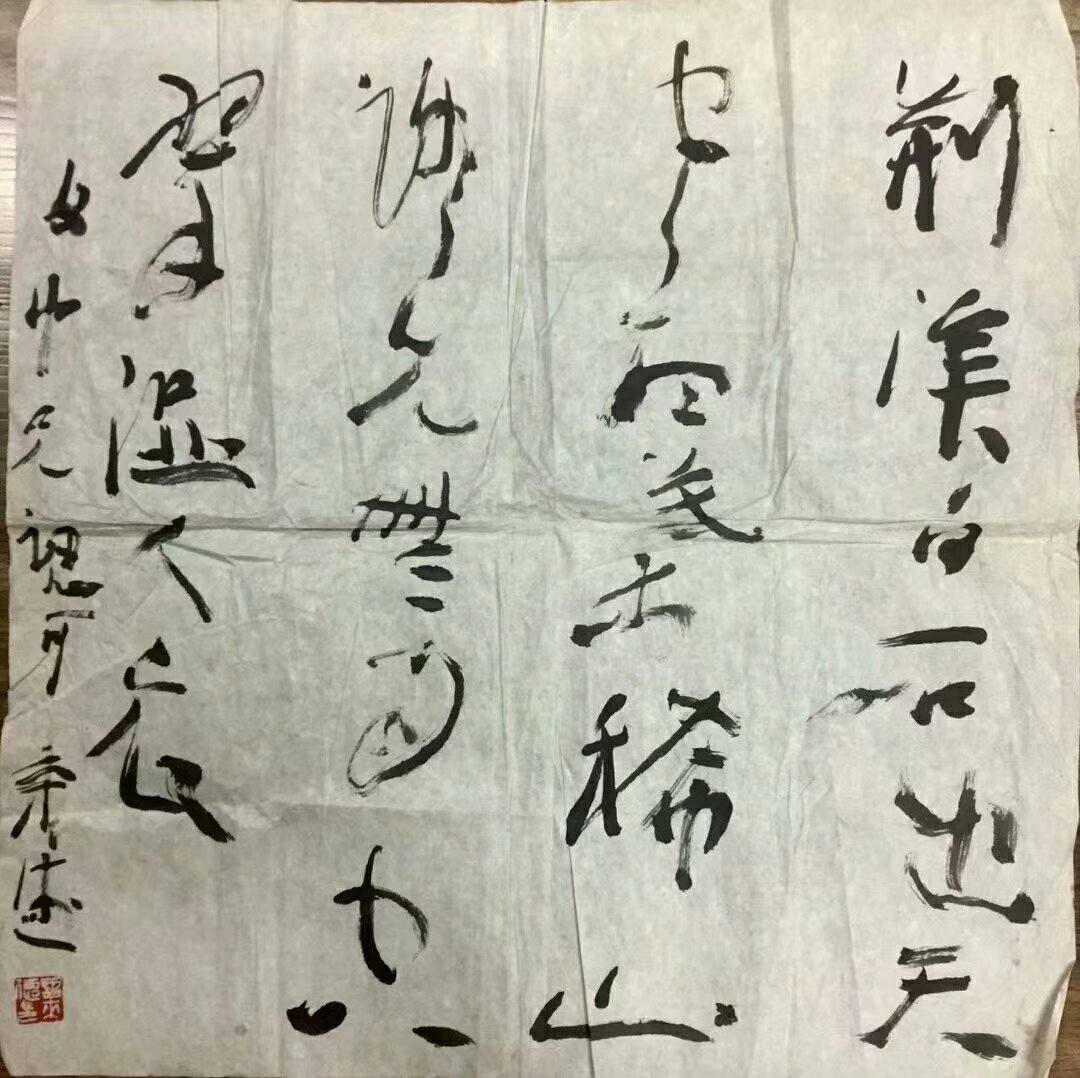 荆溪白石出天
寒紅葉稀山
路元無雨空
翠濕人衣
兄認可